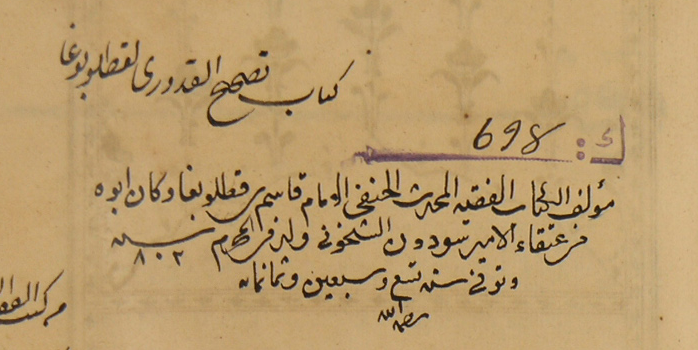 كتاب تصحيح القدورى لقطلوبوغا
ك: 698
مؤلف الكتاب الفقيه المحدث الحنفى الامام قاسم بن قطلوبغا وكان ابوه
من عتقاء الامير سودون الشيخونى ولد فى المحرم سنة ٨٠٢
وتوفى سنه تسع وسبعين وثمانمائه
رحمه الله
من كتب